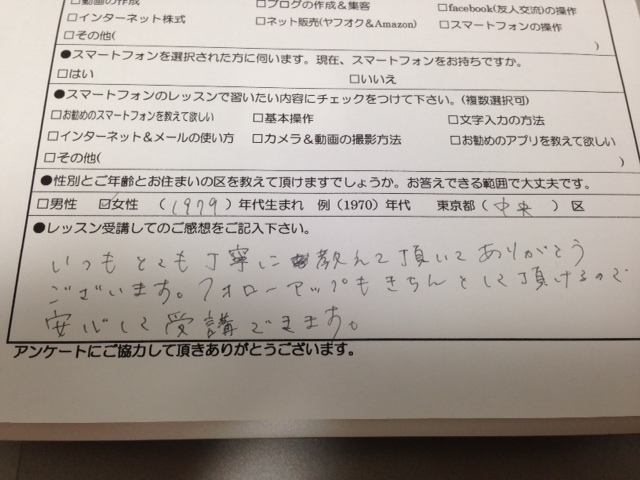 □動画の作成 □ブログの作成＆集客 □facebook(友人交流)の操作
□インターネット株式 □ネット販売(ヤフオク＆Amazon) □スマートフォンの操作
□その他( )
●スマートフォンを選択された方に伺います。現在、スマートフォンをお持ちですか。
□はい □いいえ
●スマートフォンのレッスンで習いたい内容にチェックをつけて下さい。(複数選択可)
□お勧めのスマートフォンを教えて欲しい □基本操作 □文字入力の方法
□インターネット＆メールの使い方 □カメラ＆動画の撮影方法 □お勧めのアプリを教えて欲しい
□その他( )
●性別とご年齢とお住まいの区を教えて頂けますでしょうか。お答えできる範囲で大丈夫です。
□男性 ☑女性 (1979)年代生まれ 例(1970)年代 東京都(中央)区
●レッスン受講してのご感想をご記入下さい。
いつもとても丁寧に教えて頂いてありがとう
ございます。フォローアップもきちんとして頂けるので
安心して受講できます。
アンケートにご協力して頂きありがとうございます。